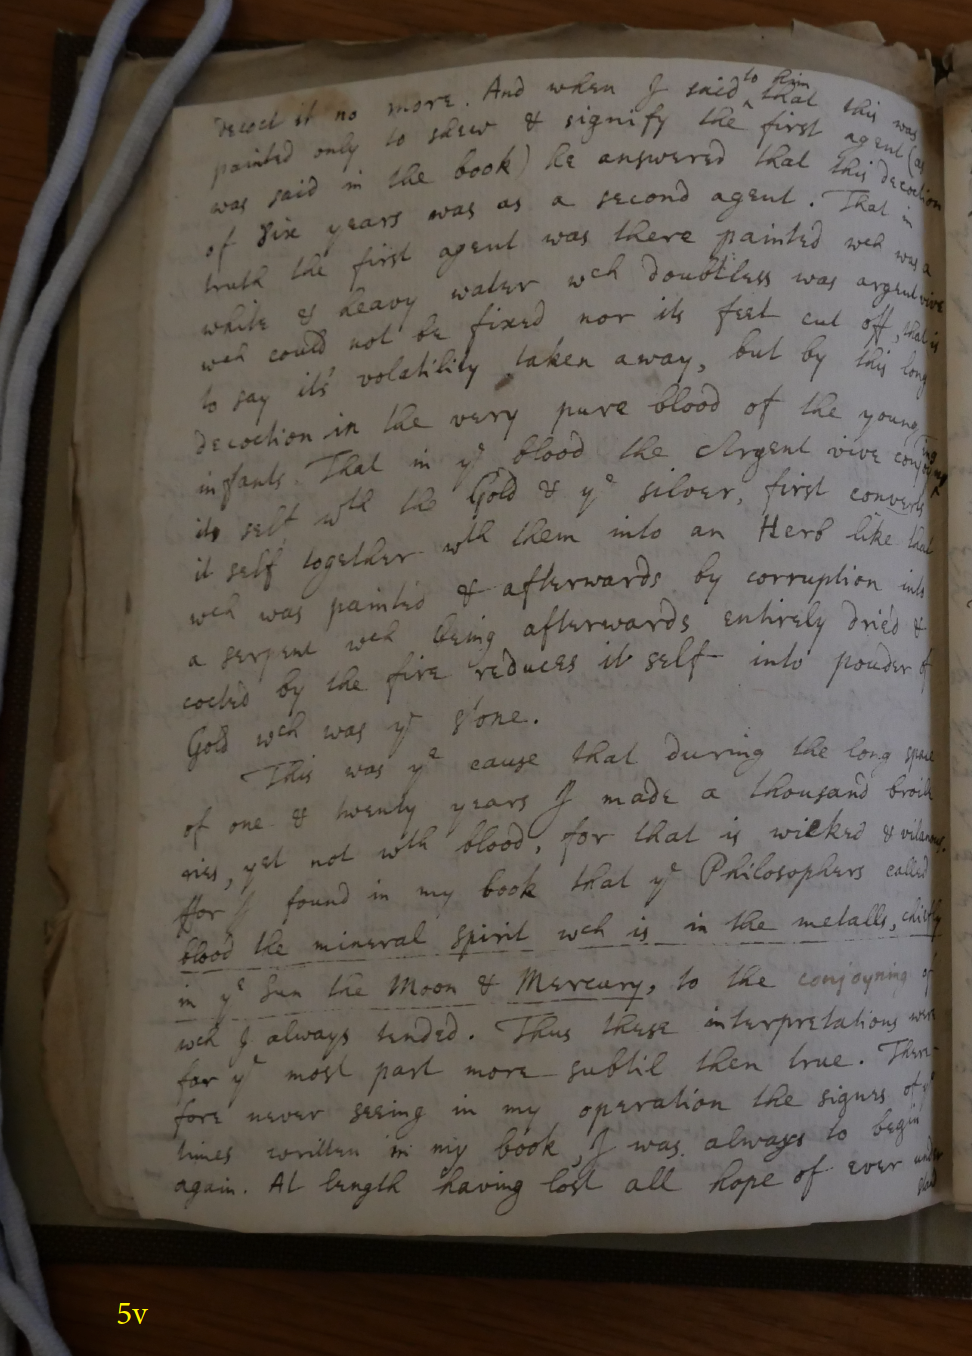 decoct it no more. And when I said to him that this was
painted only to shew & signify the first agent (as
was said in the book) he answered that this decoction
of six years was as a second agent. That in
truth the first agent was there painted wch was a
white & heavy water wch doubtless was argent vive
wch could not be fixed nor its feet cut off, that is
to say its volatility taken away, but by this long
decoction in the very pure blood of the young
infants. That in ye blood the Argent vive conjoyning
its self wth the Gold & ye silver, first converts
it self together wth them into an Herb like that
wch was painted & afterwards by corruption into
a serpent wch being afterwards entirely dried &
cocted by the fire reduces it self into pouder of
Gold wch was ye stone.
This was ye cause that during the long space
of one & twenty years I made a thousand broil
ries, yet not wth blood, for that is wicked & vilanous.
ffor I found in my book that ye Philosophers called
blood the mineral spirit wch is in the metalls, chiefly
in ye Sun the Moon & Mercury, to the conjoyning of
wch I always tended. Thus these interpretations were
for ye most part more subtil then true. There-
fore never seeing in my operation the signes of ye
times written in my book, I was always to begin
again. At length having lost all hope of ever under
stand
5v